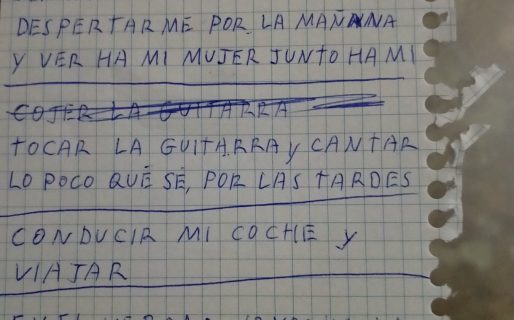 DESPERTARME POR LA MAÑANA
Y VER HA MI MUJER JUNTO HA MI
COJER LA GUITARRA
TOCAR LA GUITARRA Y CANTAR
LO POCO QUÉ SÉ, POR LAS TARDES
CONDUCIR MI COCHE Y
VIAJAR